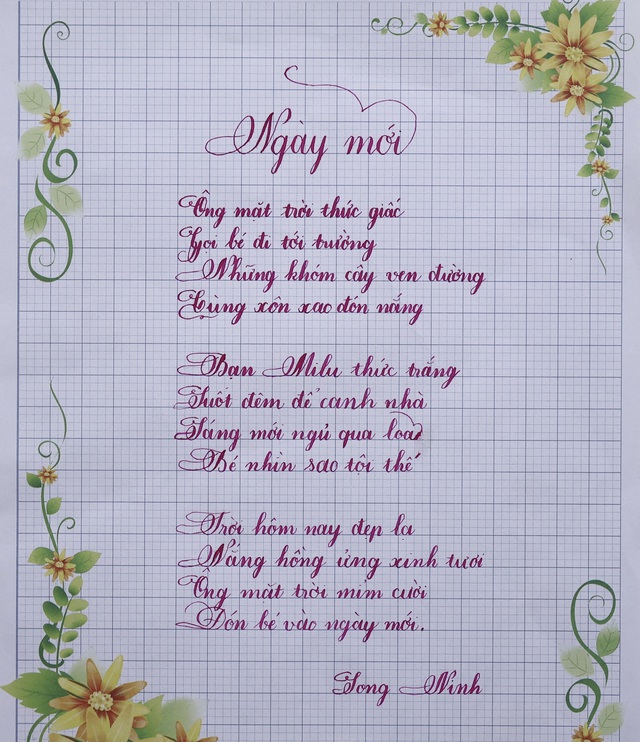 Ngày mới
Ông mặt trời thức giấc
Gọi bé đi tới trường
Những khóm cây ven đường
Cùng xôn xao đón nắng
Bạn Milu thức trắng
Suốt đêm để canh nhà
Sáng mới ngủ qua loa
Bé nhìn sao tội thế
Trời hôm nay đẹp lạ
Nắng hồng ửng xinh tươi
Ông mặt trời mỉm cười
Đón bé vào ngày mới.
Song Ninh